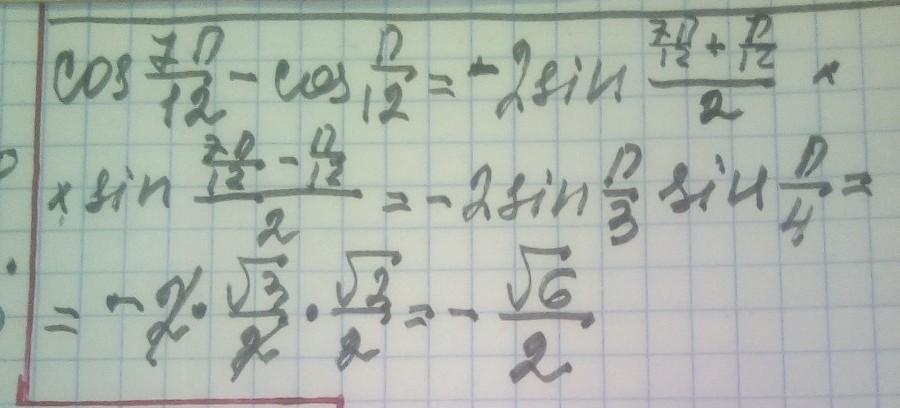 cos 7π/12 - cos π/12 = -2 sin (7π/12 + π/12)/2 ×
× sin (7π/12 - π/12)/2 = -2 sin π/3 sin π/4 =
= -2 · √3/2 · √2/2 = - √6/2